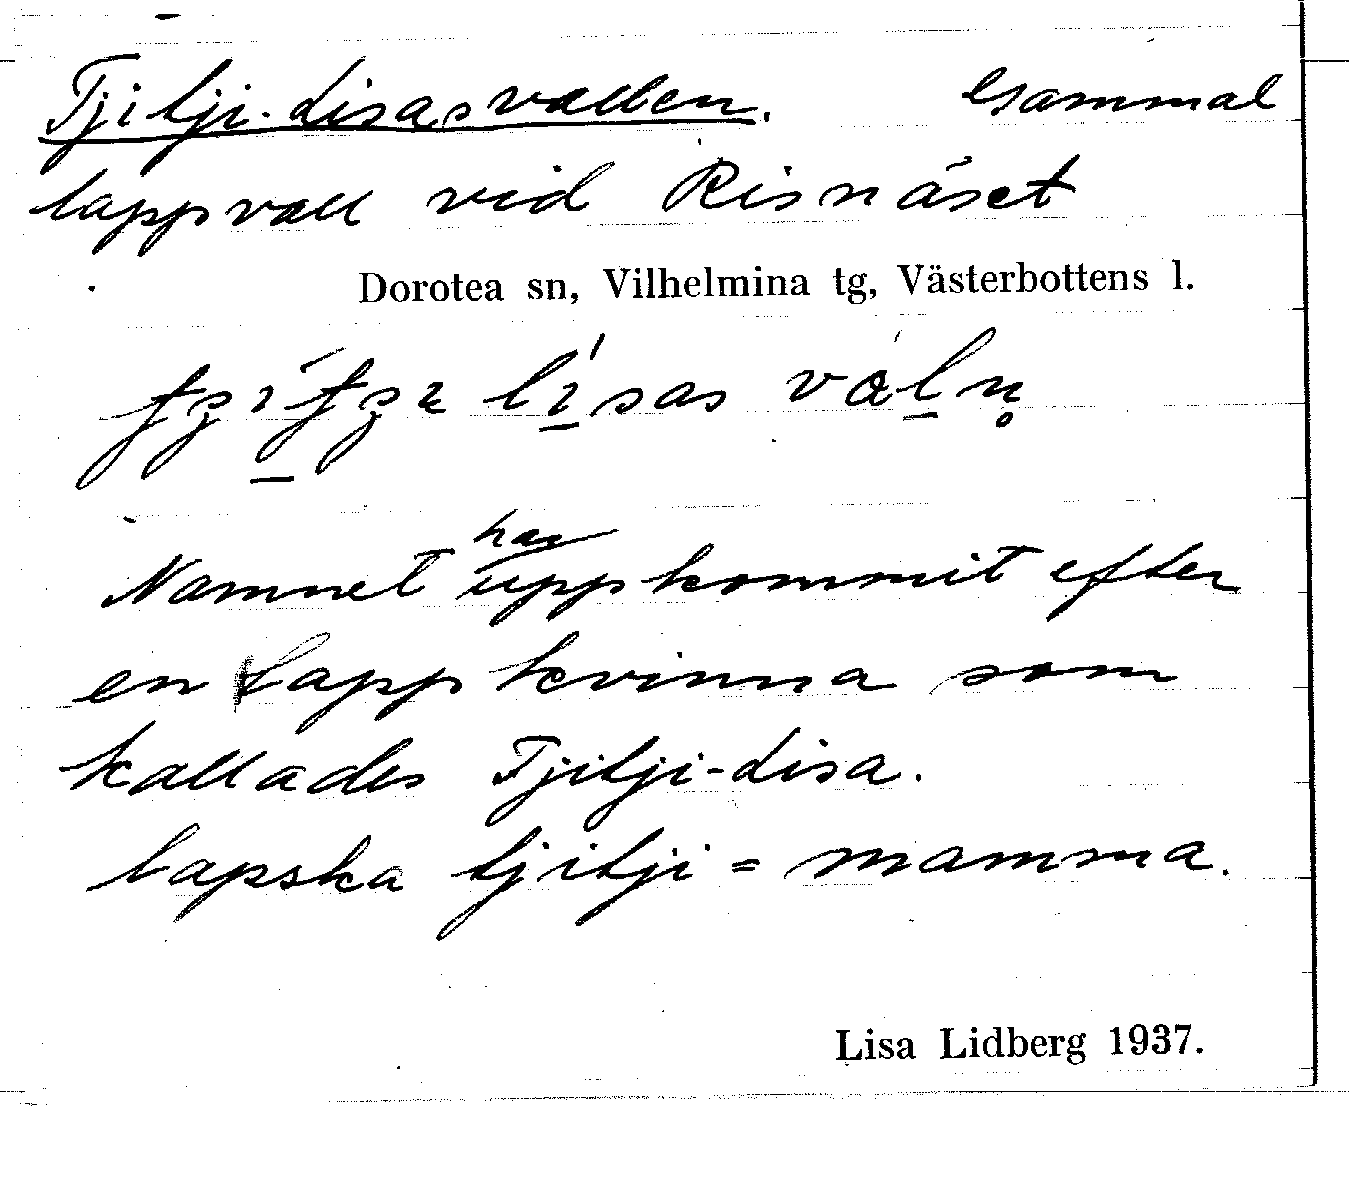 Tjitji-Lisas vallen. Gammal
lappvall vid Risnäset
Dorotea sn, Vilhelmina tg, Västerbottens l.
lisas
Namnet har uppkommit efter
en Lappkvinna som
kallades Tjitji-Lisa.
lapska tjitji = mamma.
Lisa Lidberg 1937.